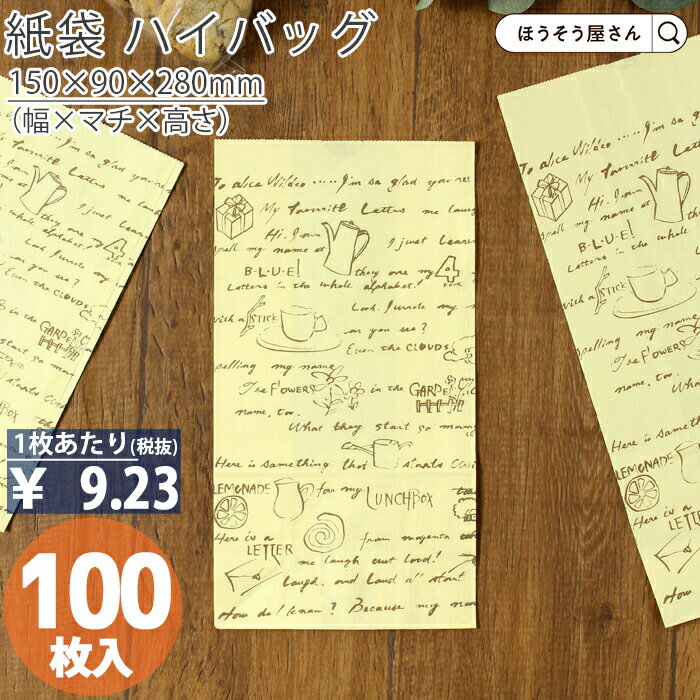 紙袋 ハイバッグ
150×90×280mm
(幅×マチ×高さ)
ほうそう屋さん
To alice Wildco ..... I'm so glad you're
My favourite Letters me laugh
Hi. I am
spell my name at I just Learn
B·L·U·E! they are my 4
Letters in the whole alphabet!
with a STICK Look. I wrode my
can you see?
Even the CLOUDS
spelling my name
The FlOWERS in the GARDEN
name, too.
What they start go morning
Here is something that starts
LEMONADE for my LUNCHBOX
Here is a LETTER from magenta
me laugh out loud!
laugh. and Loud a start
How do I know? Because my name
1枚あたり(税抜)
¥ 9.23
100
枚入